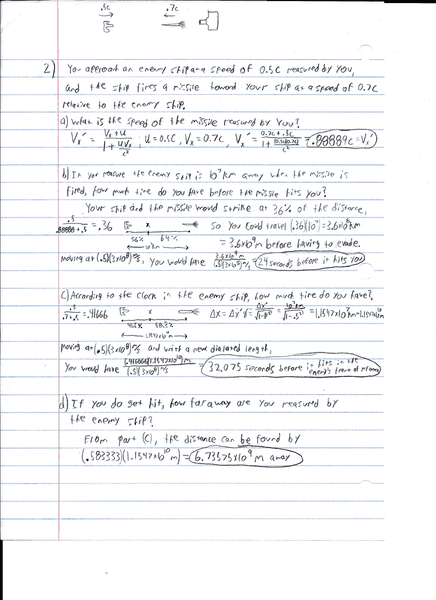 .5c .7c
2) You approach an enemy ship at a speed of 0.5C measured by you,
and the ship fires a missile toward your ship at a speed of 0.7C
relative to the enemy ship.
a) What is the speed of the missile measured by you?
Vx' = (Vx + u) / (1 + uVx/c²), u = 0.5C, Vx = 0.7C, Vx' = = .88889c = Vx'
b) If you measure the enemy ship is 10⁷ km away when the missile is
fired, how much time do you have before the missile hits you?
Your ship and the missile would strike at 36% of the distance,
.5 / (.88888 + .5) = .36 x So you could travel (.36)(10⁷) = 3.6x10⁶ km
36% 64% = 3.6x10⁹ m before having to evade.
10⁷ km
Moving at (.5)(3x10⁸) m/s, you would have 3.6x10⁹ m / (.5)(3x10⁸) m/s = 24 seconds before it hits you
c) According to the clock in the enemy ship, how much time do you have?
.5 / (.7 + .5) = .41666 x Δx = Δx'γ = Δx' / √(1-β²) = 10⁷ km / √(1-.5²) = 1.1547x10⁷ km = 1.1547x10¹⁰ m
41.6% 58.3%
1.1547x10¹⁰ m
Moving at (.5)(3x10⁸) m/s and with a new dialated length,
You would have (.416666)(1.1547x10¹⁰) m / (.5)(3x10⁸) m/s = 32.075 seconds before it hits in the enemy's frame of
d) If you do get hit, how far away are you measured by
the enemy ship?
From part (c), the distance can be found by
(.583333)(1.1547x10¹⁰ m) = 6.73575x10⁹ m away